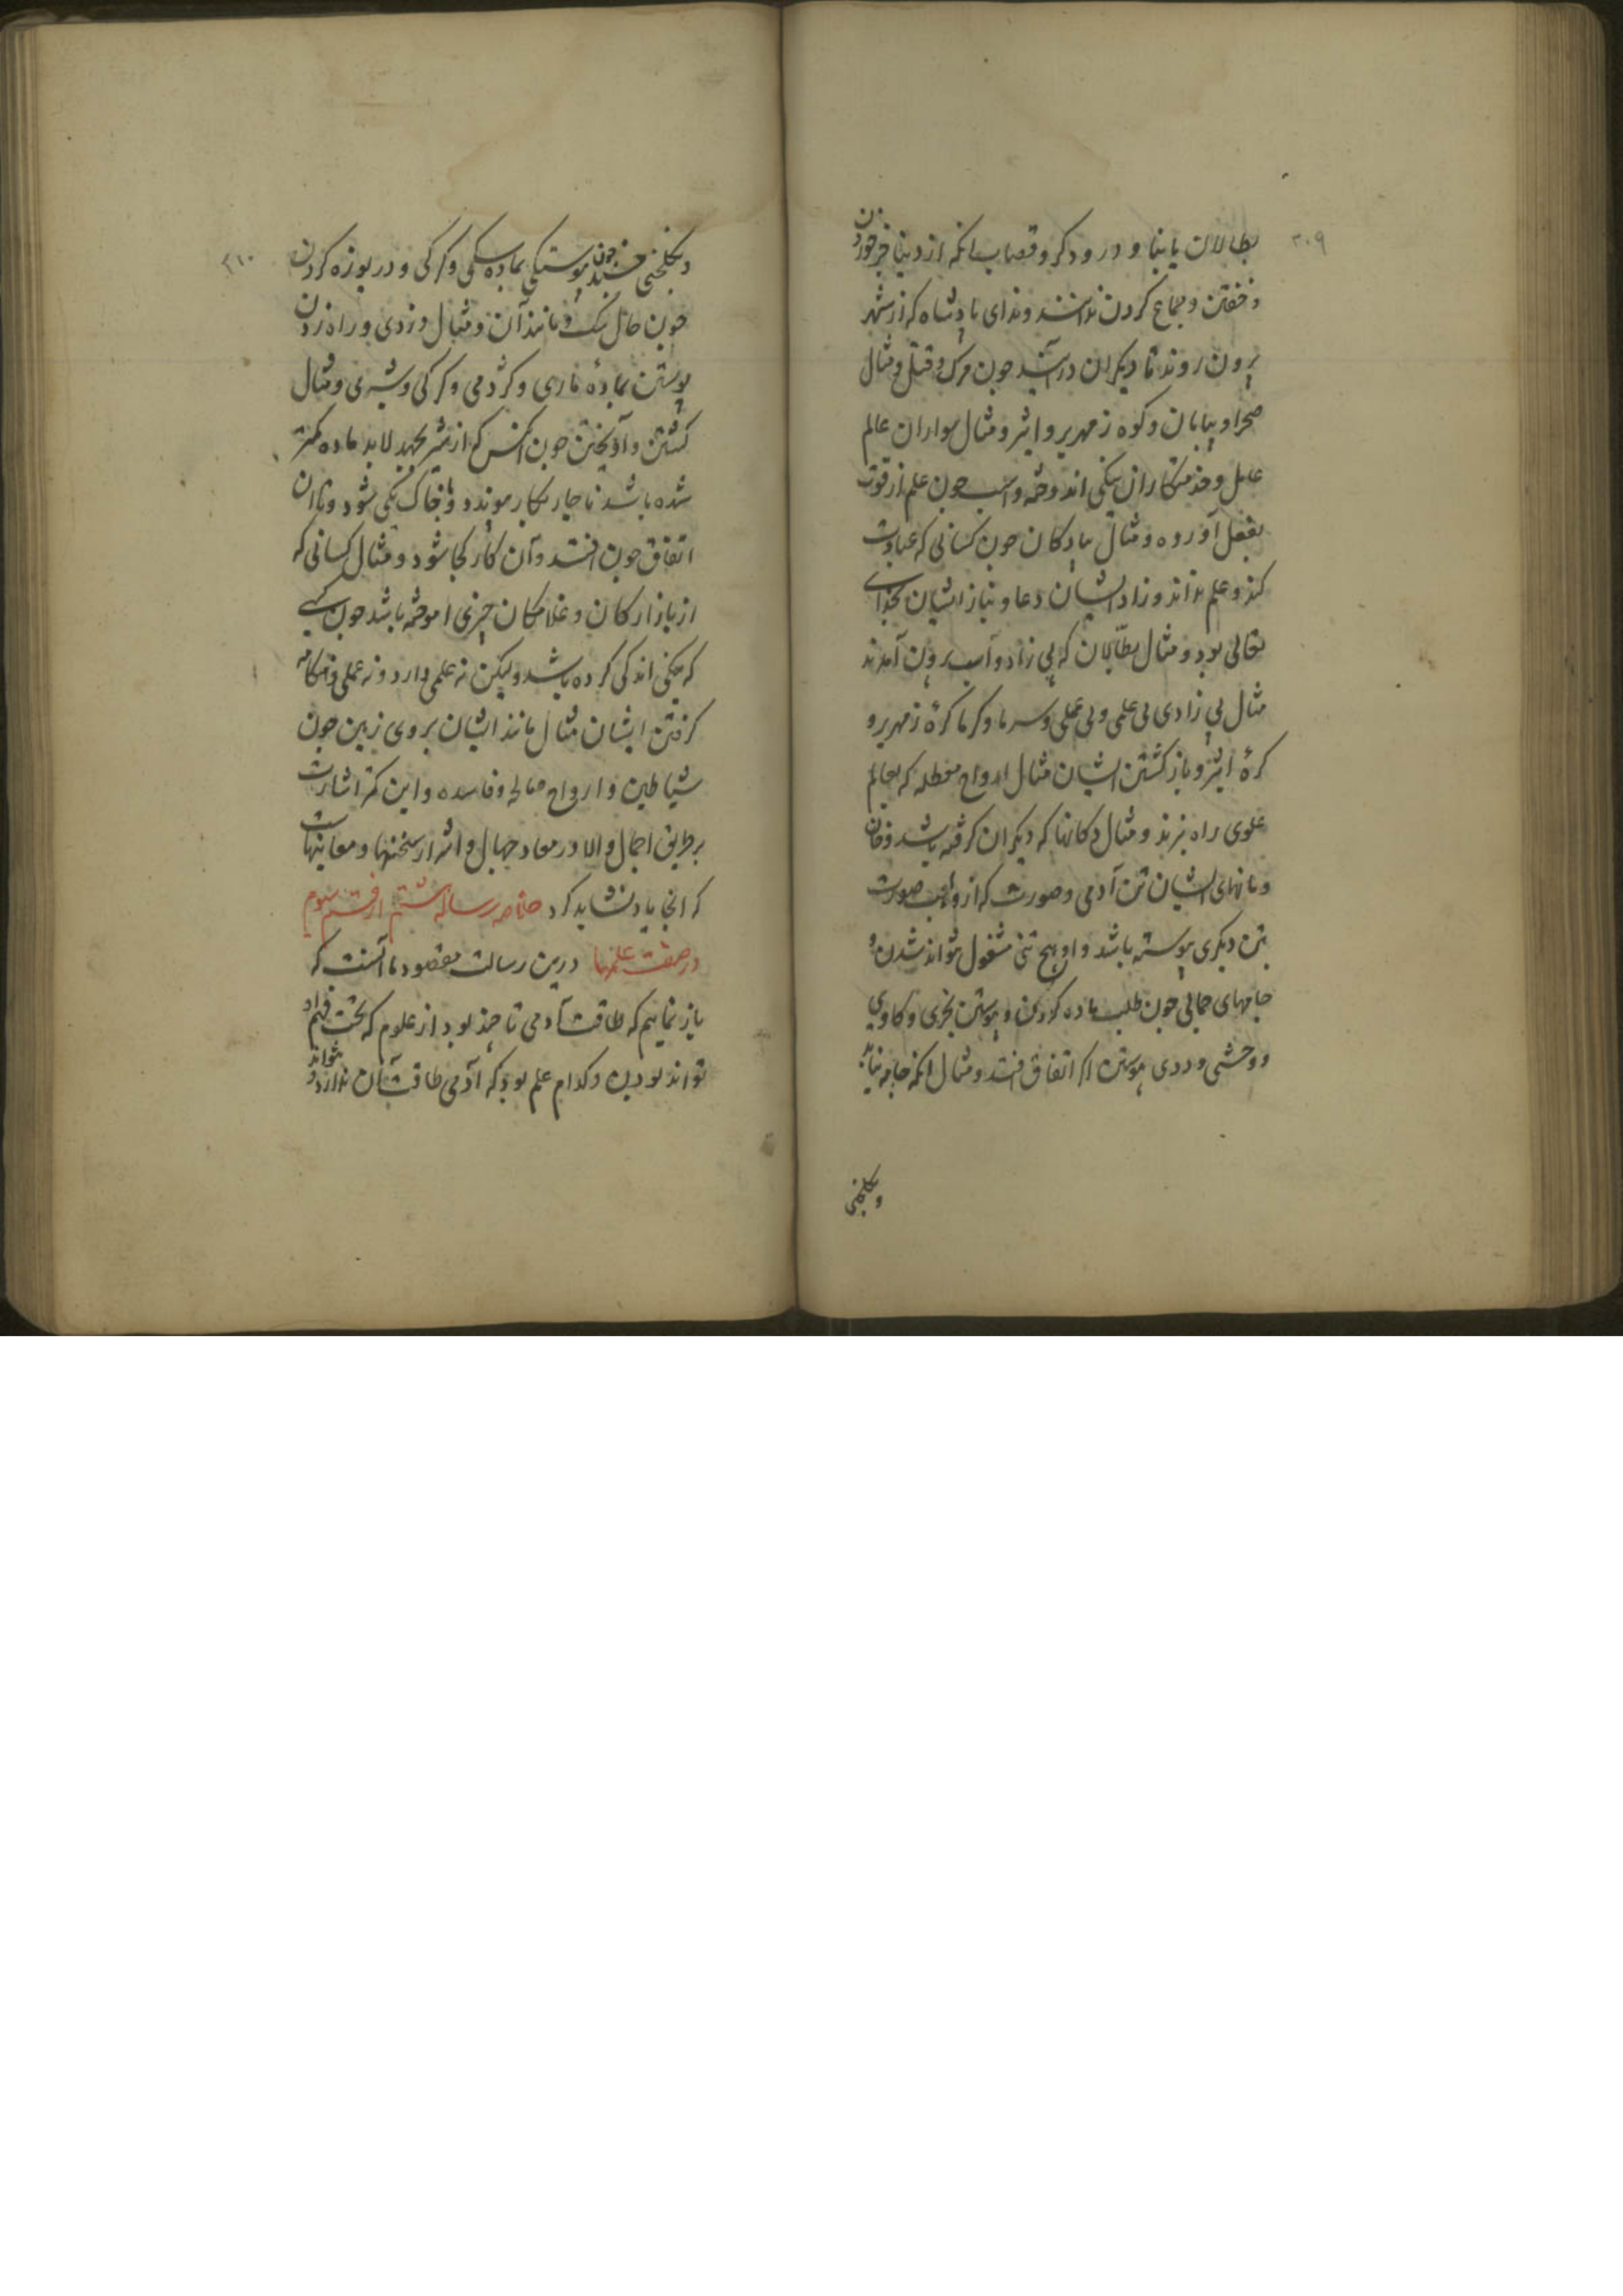 ۳۰۹
بطالان یا بنا و درودکر و قصاب انکه از دنیا خبر خوردن
و خفتن و جماع کردن ندانند و ندای پادشاه که از شهر
برون روند تا دیکران درآیند جون مرک و قتل و مثال
صحرا و بیابان و کوه زمهریر و اثیر و مثال سواران عالم
عامل و خدمتکاران نیکی اندوخته و اسب جون علم از قوت
بفعل آورده و مثال پیادکان جون کسانی که عبادت
کند و علم نداند و زاد ایشان دعا و نیاز ایشان بخدای
تعالی بود و مثال بطّالان که بی زاد و اسب برون آمدند
مثال بی زادی بی علمی و بی عملی و سرما و کرما کرهٔ زمهریر و
کرهٔ اثیر و باز کشتن ایشان مثال ارواح معطله که بعالم
علوی راه نبرند و مثال دکانها که دیکران کرفته باشد و خان
و مانهای ایشان تن آدمی و صورت که از واهب صورت
بتن دیکری پیوسته باشد و او بهیچ تنی مشغول نتواند شدن و
جامهای حمالی جون طلب ماده کردن و پیوستن بخری و کاوی
و وحشی و ددی پیوستن اکر اتفاق افتد و مثال انکه جامه نیابد
و بکلخنی
۳۱۰
و بکلخنی خسبد جون پیوستکی بماده سکی و کرکی و دریوزه کردن
جون حال سک و مانند آن و مثال دزدی و راه زدن
پیوستن بمادهٔ ماری و کژدمی و کرکی و شیری و مثال
کشتن و آویختن جون انکس که از شر بجهد لابد ماده کمتر
شده باشد ناجار بکار پیوندد و باخاک یکی شود و تا آن
اتفاق جون افتد و آن کار کجا شود و مثال کسانی که
از بازارکان و غلامکان چیزی اموخته باشد جون کسی
که نیکی اندکی کرده باشد و لیکن نه علمی دارد و نه عملی و هنکامه
کرفتن ایشان مثال مانند ایشان بروی زمین جون
شیاطین و ارواح صالحه و فاسده و این کمتر اشارت
بر طریق اجمال و الا در معاد جهال و اشرار سخنها و معاینهاست
که انجا یاد نشاید کرد خلاصه رساله هشتم از قسم سوم
در صفت علمها درین رسالت مقصود ما آنست که
باز نماییم که طاقت آدمی تا چند بود از علوم که تحت فهم او
تواند بودن و کدام علم بود که آدمی طاقت آن ندارد و نتواند